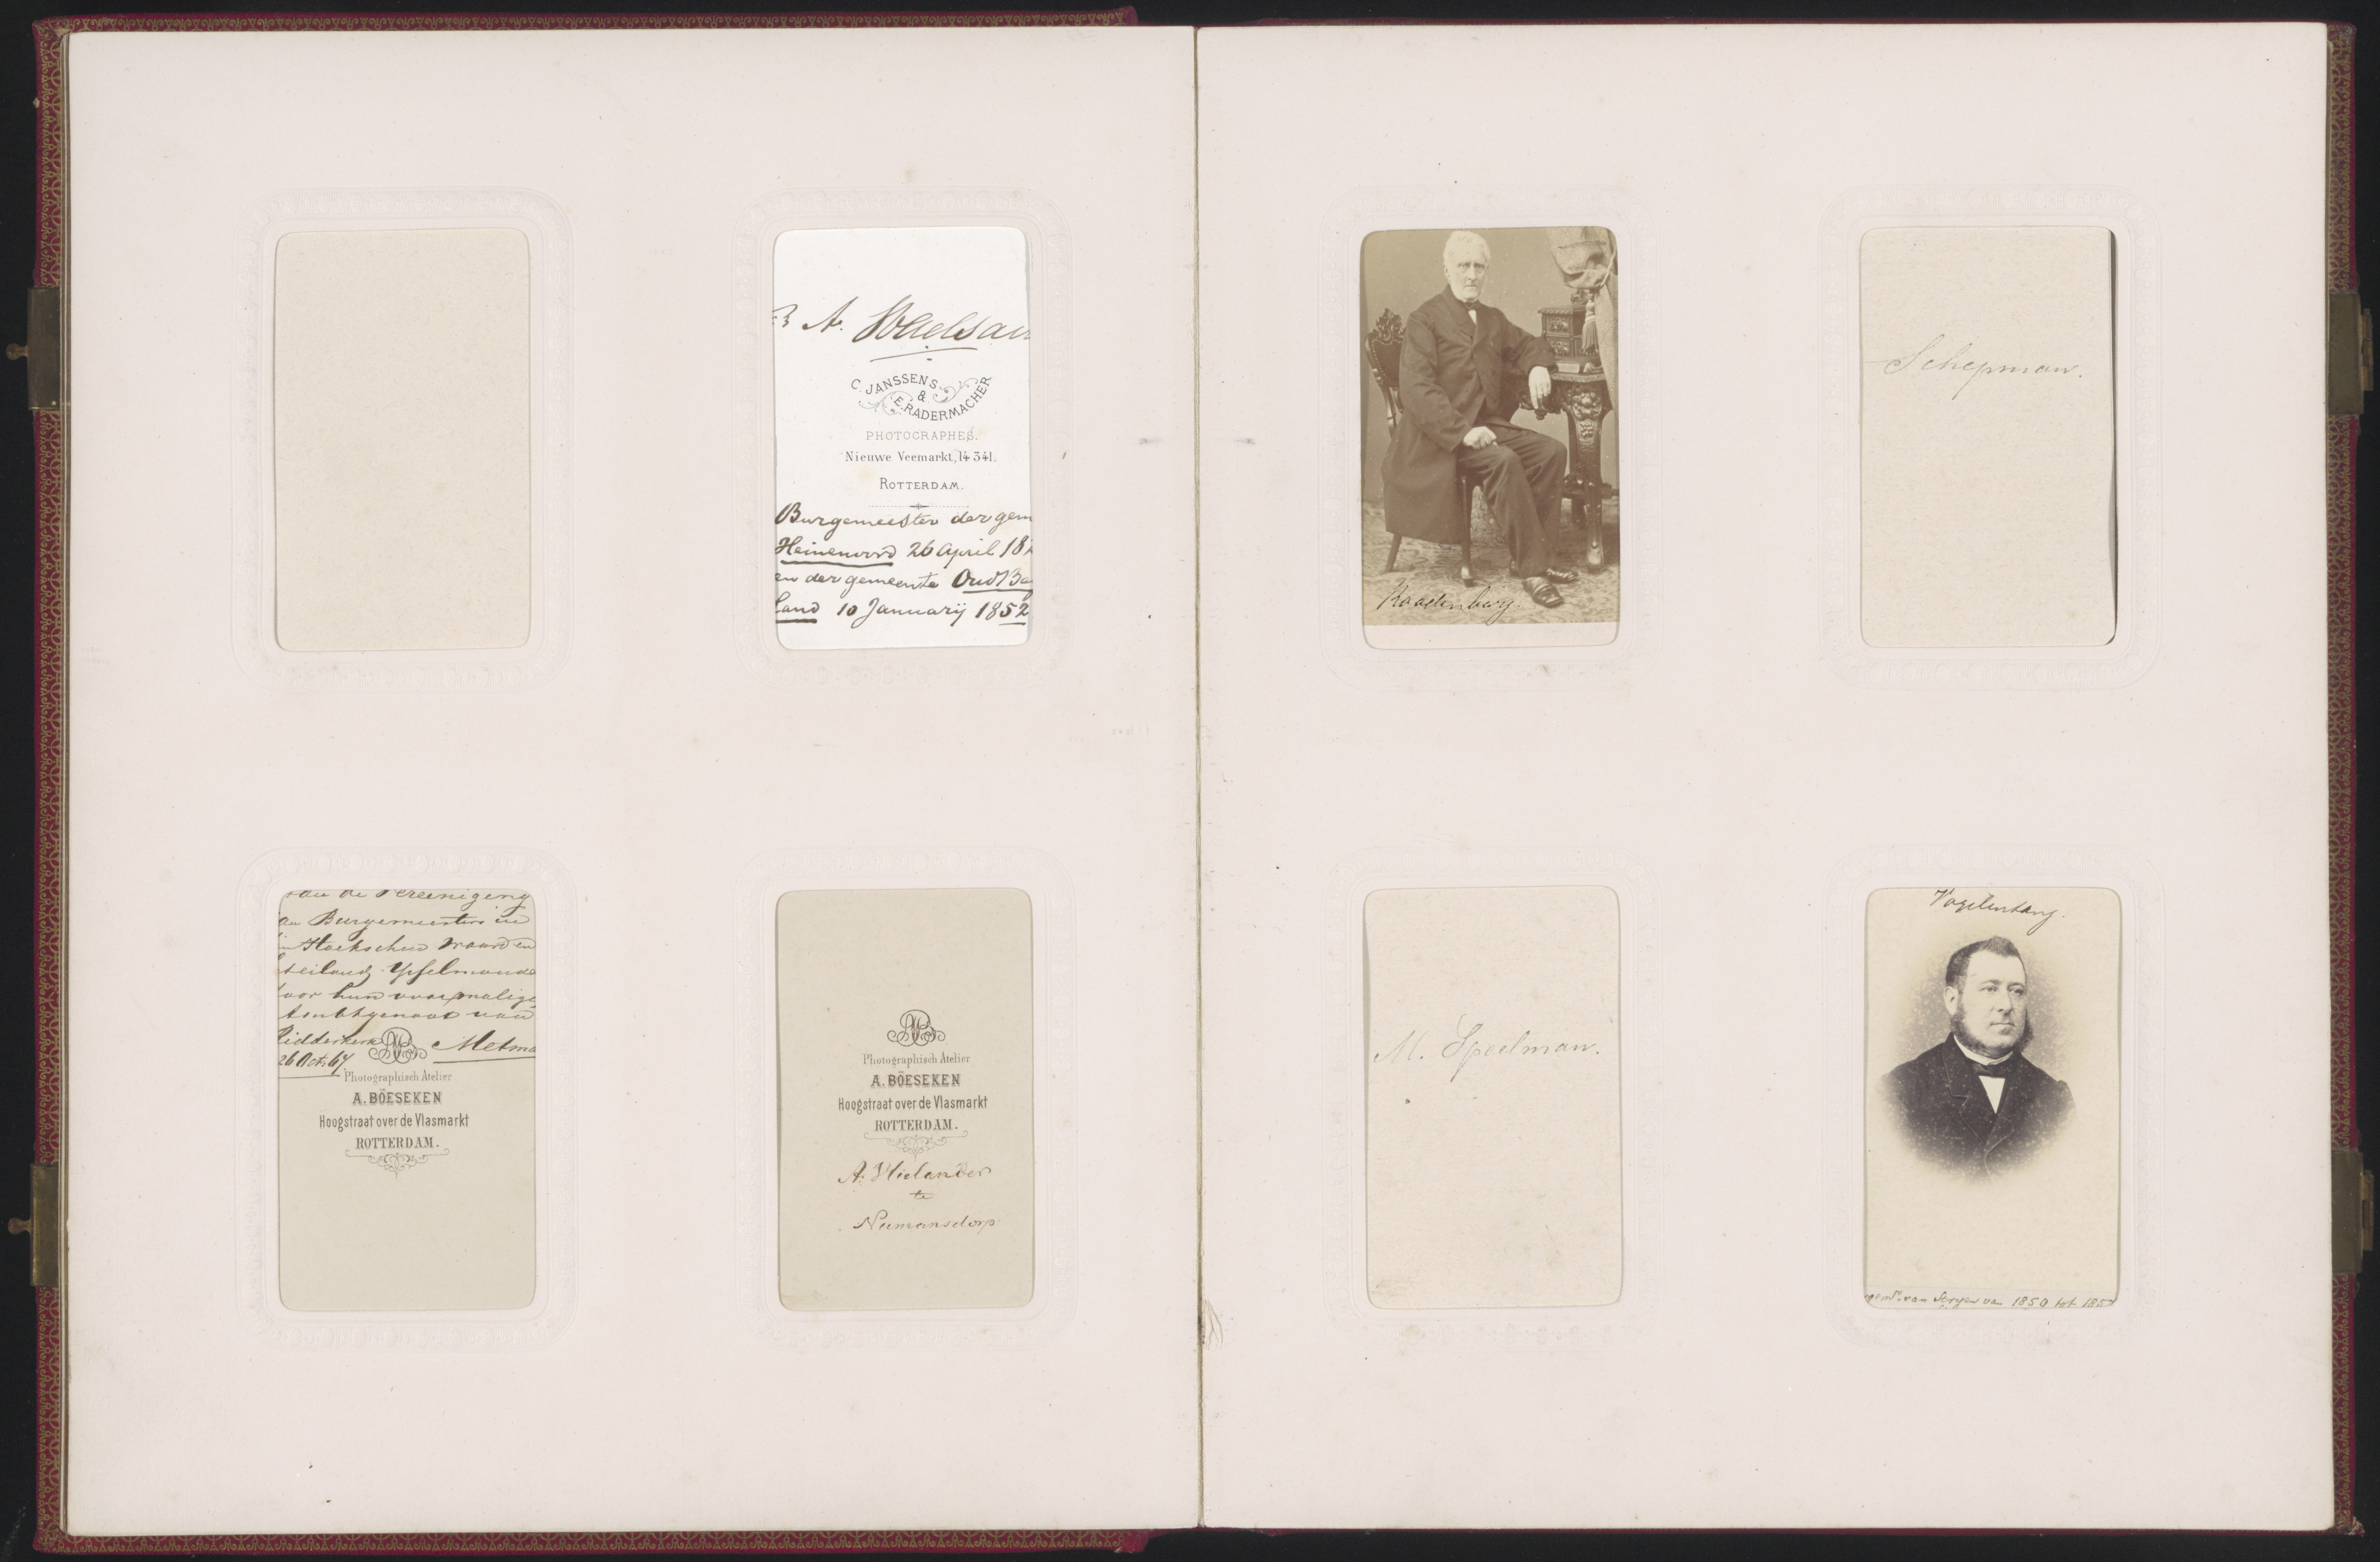 A.
C. JANSSENS
&
E. RADERMACHER
PHOTOGRAPHES.
Nieuwe Veemarkt, 14 341.
ROTTERDAM.
Burgemeester der gem
Heinenoord 26 April 18
en der gemeente Oud B
land 10 Januarij 1852
de Vereeniging
Burgemeesters in
Hoeksche Waard en
eiland Ysselmonde
voor hun voormalige
Ambtgenoot van
Ridderkerk
26 Oct. 67
Photographisch Atelier
A. BÖESEKEN
Hoogstraat over de Vlasmarkt
ROTTERDAM.
Photographisch Atelier
A. BÖESEKEN
Hoogstraat over de Vlasmarkt
ROTTERDAM.
A. Vlielander
te
Numansdorp
Schepman.
M. Speelman.
Vogelenzang.
van 1850 tot 185